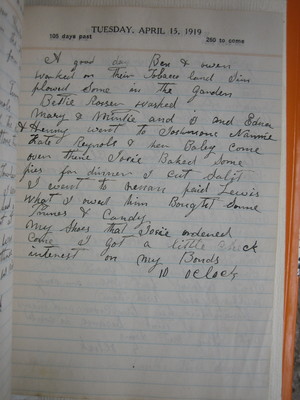 TUESDAY, APRIL 15, 1919
105 days past 260 to come
A good day Ben & owen
worked on their Tobacco land Jim
plowed Some in the Garden
Bettie washed
Mary & Mintie and I and Edna
& Henry went to Nannie
Kate Reynols & her Baby come
over there Josie Baked Some
pies for dinner I cut
I went to paid Lewis
what I owed him Bought Some
Prunes & Candy
My Shoes that Josie ordered
Come I got a little check
interest on my Bonds
10 oclock